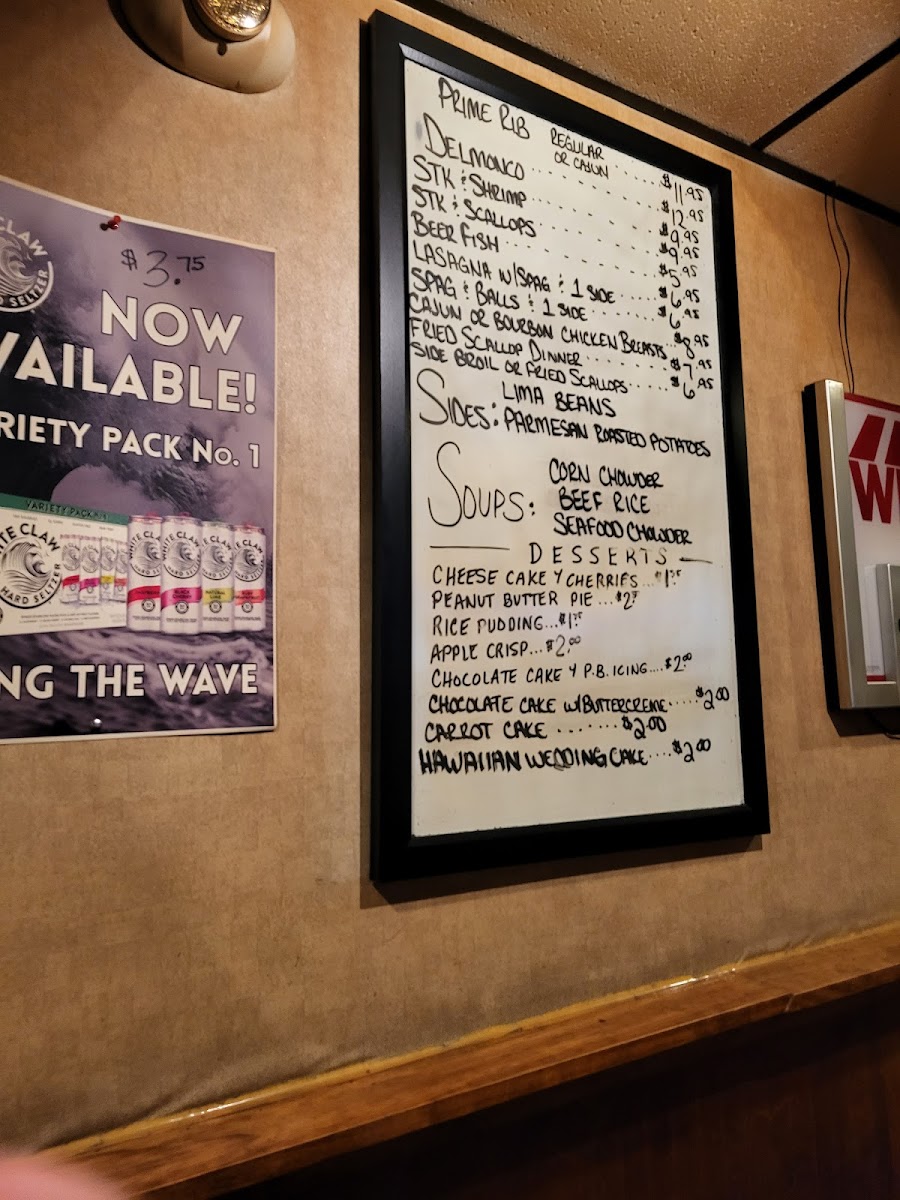 PRIME RIB REGULAR OR CAJUN $11.95
DELMONCO $12.95
STK & SHRIMP $9.95
STK & SCALLOPS $9.95
BEER FISH $5.95
LASAGNA W/SPAG & 1 SIDE $6.95
SPAG & BALLS & 1 SIDE $6.95
CAJUN OR BOURBON CHICKEN BREASTS $8.95
FRIED SCALLOP DINNER $7.95
SIDE BROIL OR FRIED SCALLOPS $6.95
SIDES: LIMA BEANS
PARMESAN ROASTED POTATOES
SOUPS: CORN CHOWDER
BEEF RICE
SEAFOOD CHOWDER
DESSERTS
CHEESE CAKE Y CHERRIES...$1.75
PEANUT BUTTER PIE...$2.25
RICE PUDDING...$1.75
APPLE CRISP...$2.00
CHOCOLATE CAKE Y P.B. ICING....$2.00
CHOCOLATE CAKE W/BUTTERCREME.....$2.00
CARROT CAKE.......$2.00
HAWAIIAN WEDDING CAKE....$2.00
CLAW
HARD SELTZER
$3.75
NOW
VAILABLE!
RIETY PACK No. 1
VARIETY PACK
WHITE CLAW
HARD SELTZER
WHITE CLAW
WHITE CLAW
WHITE CLAW
WHITE CLAW
BLACK CHERRY
NATURAL LIME
NG THE WAVE
W